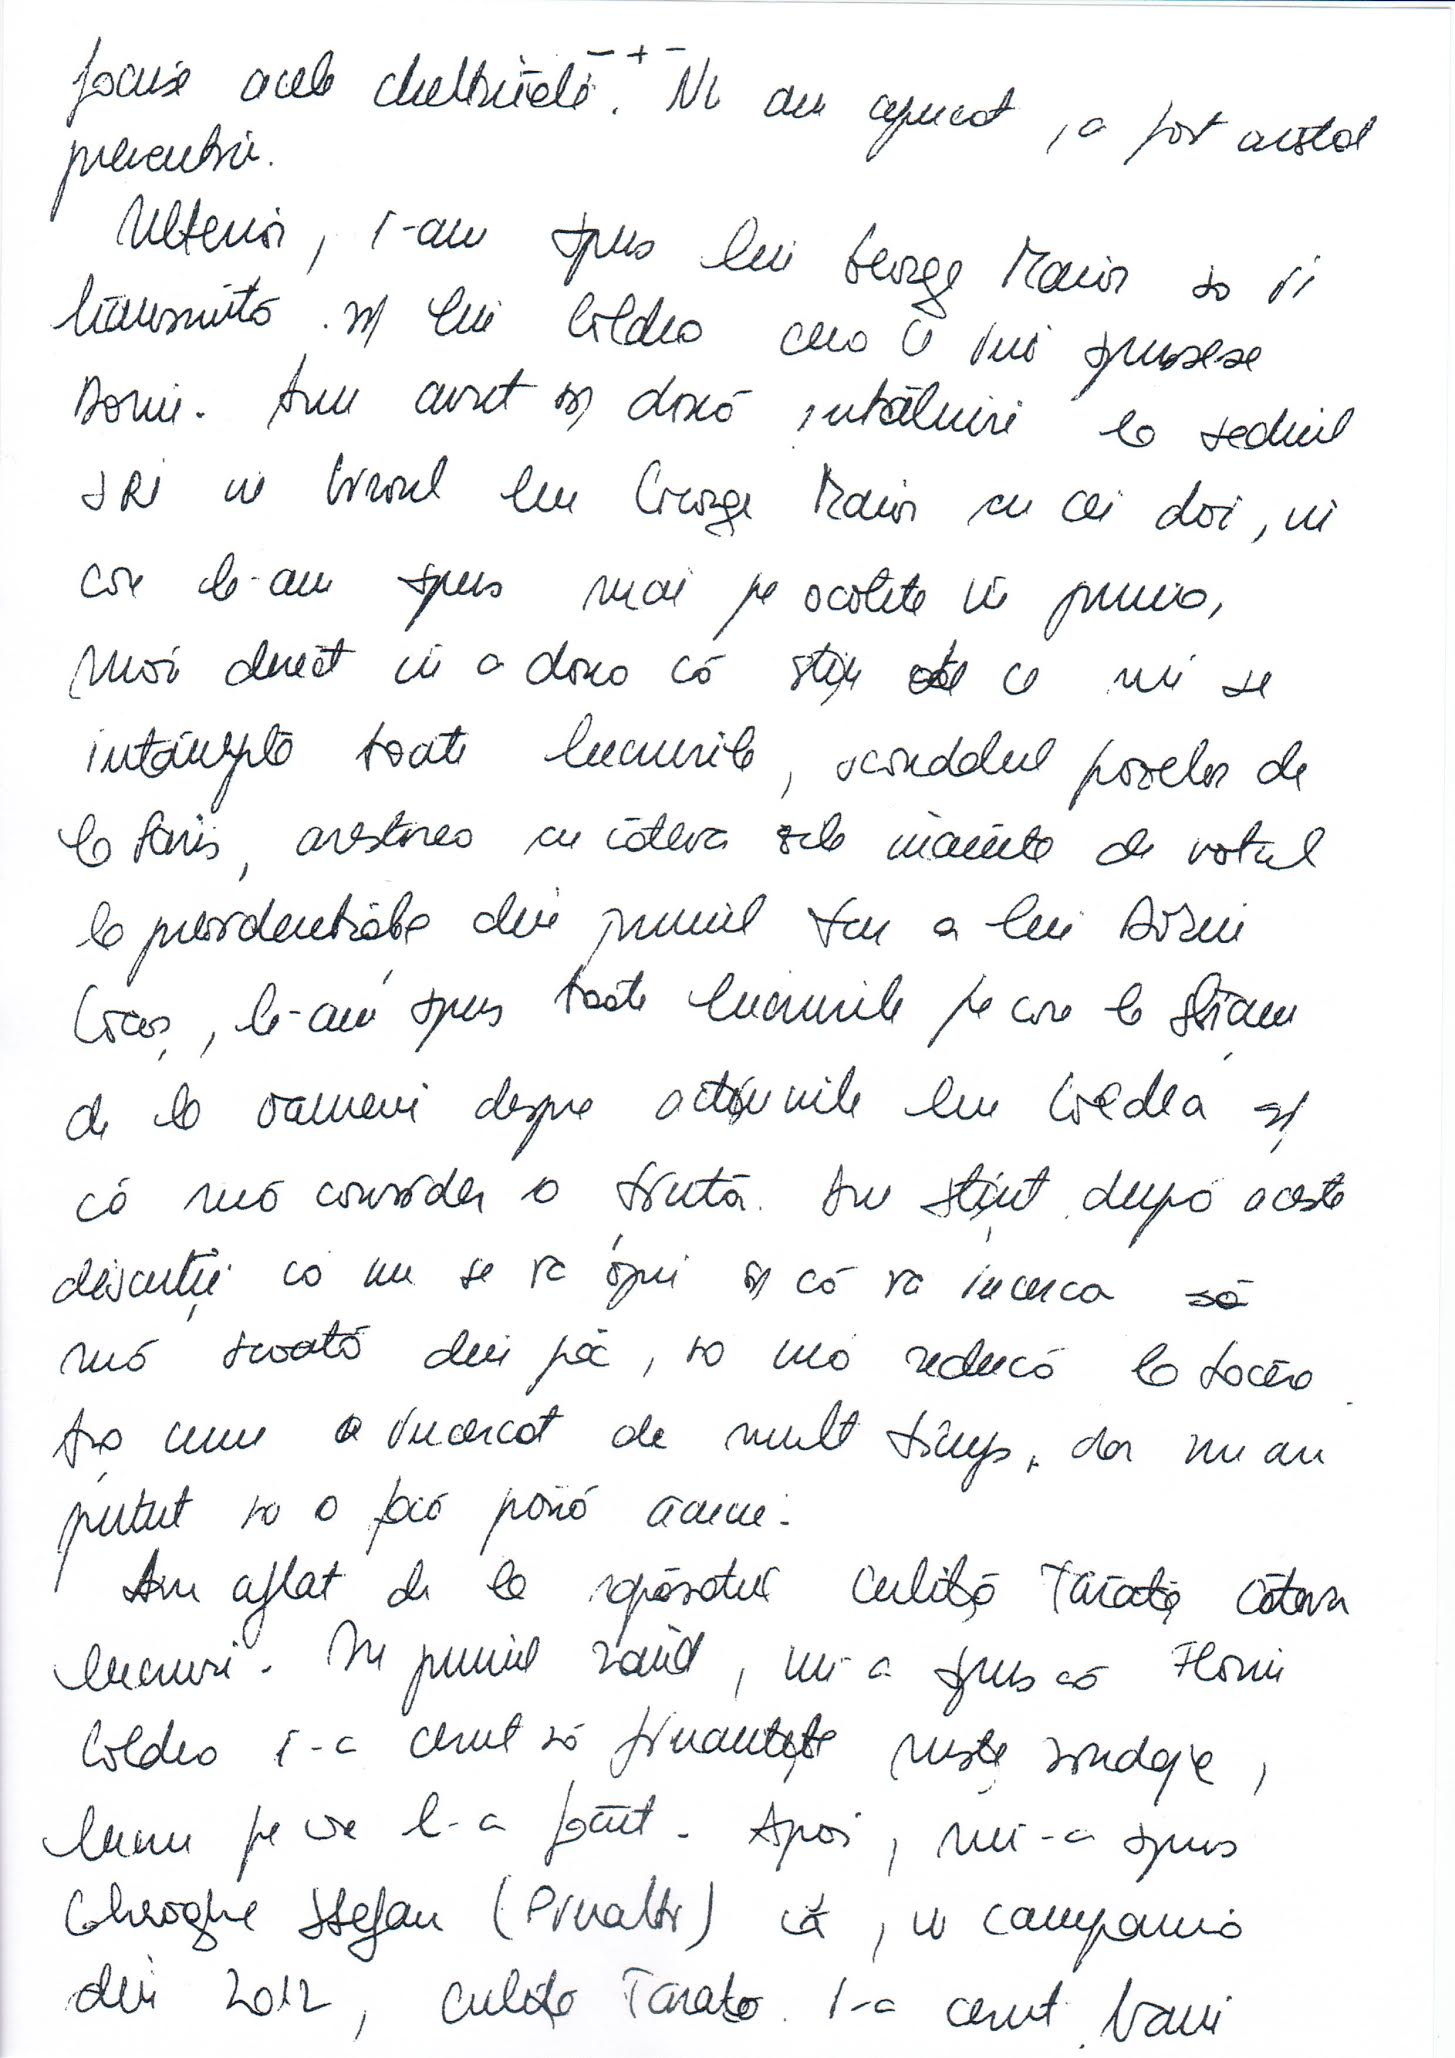 făcuse acele cheltuieli. N-am apucat, a fost arestat
preventiv.
Ulterior, i-am spus lui George Maior să îi
transmită și lui Coldea ceea ce îmi spusese
Dorin. Am avut și două întâlniri la sediul
SRI în biroul lui George Maior cu cei doi, în
care le-am spus mai pe ocolite în prima,
mai direct în a doua că știu de ce mi se
întâmplă toate lucrurile, scandalul pozelor de
la Paris, arestarea cu câteva zile înainte de votul
la prezidențiale din primul tur a lui Dorin
Cocoș, le-am spus toate lucrurile pe care le știam
de la oameni despre acțiunile lui Coldea și
că mă consider o țintă. Am știut după aceste
discuții că nu se va opri și că va încerca să
mă scoată din joc, să mă reducă la tăcere
Așa cum a încercat de mult timp, dar nu au
putut să o facă până acum.
Am aflat de la răposatul Culiță Tărâță câteva
lucruri. În primul rând, mi-a spus că Florin
Coldea i-a cerut să finanțeze niște sondaje,
lucru pe care l-a făcut. Apoi, mi-a spus
Gheorghe Ștefan (Pinalti) că, în campania
din 2012, Culiță Tărâță i-a cerut bani